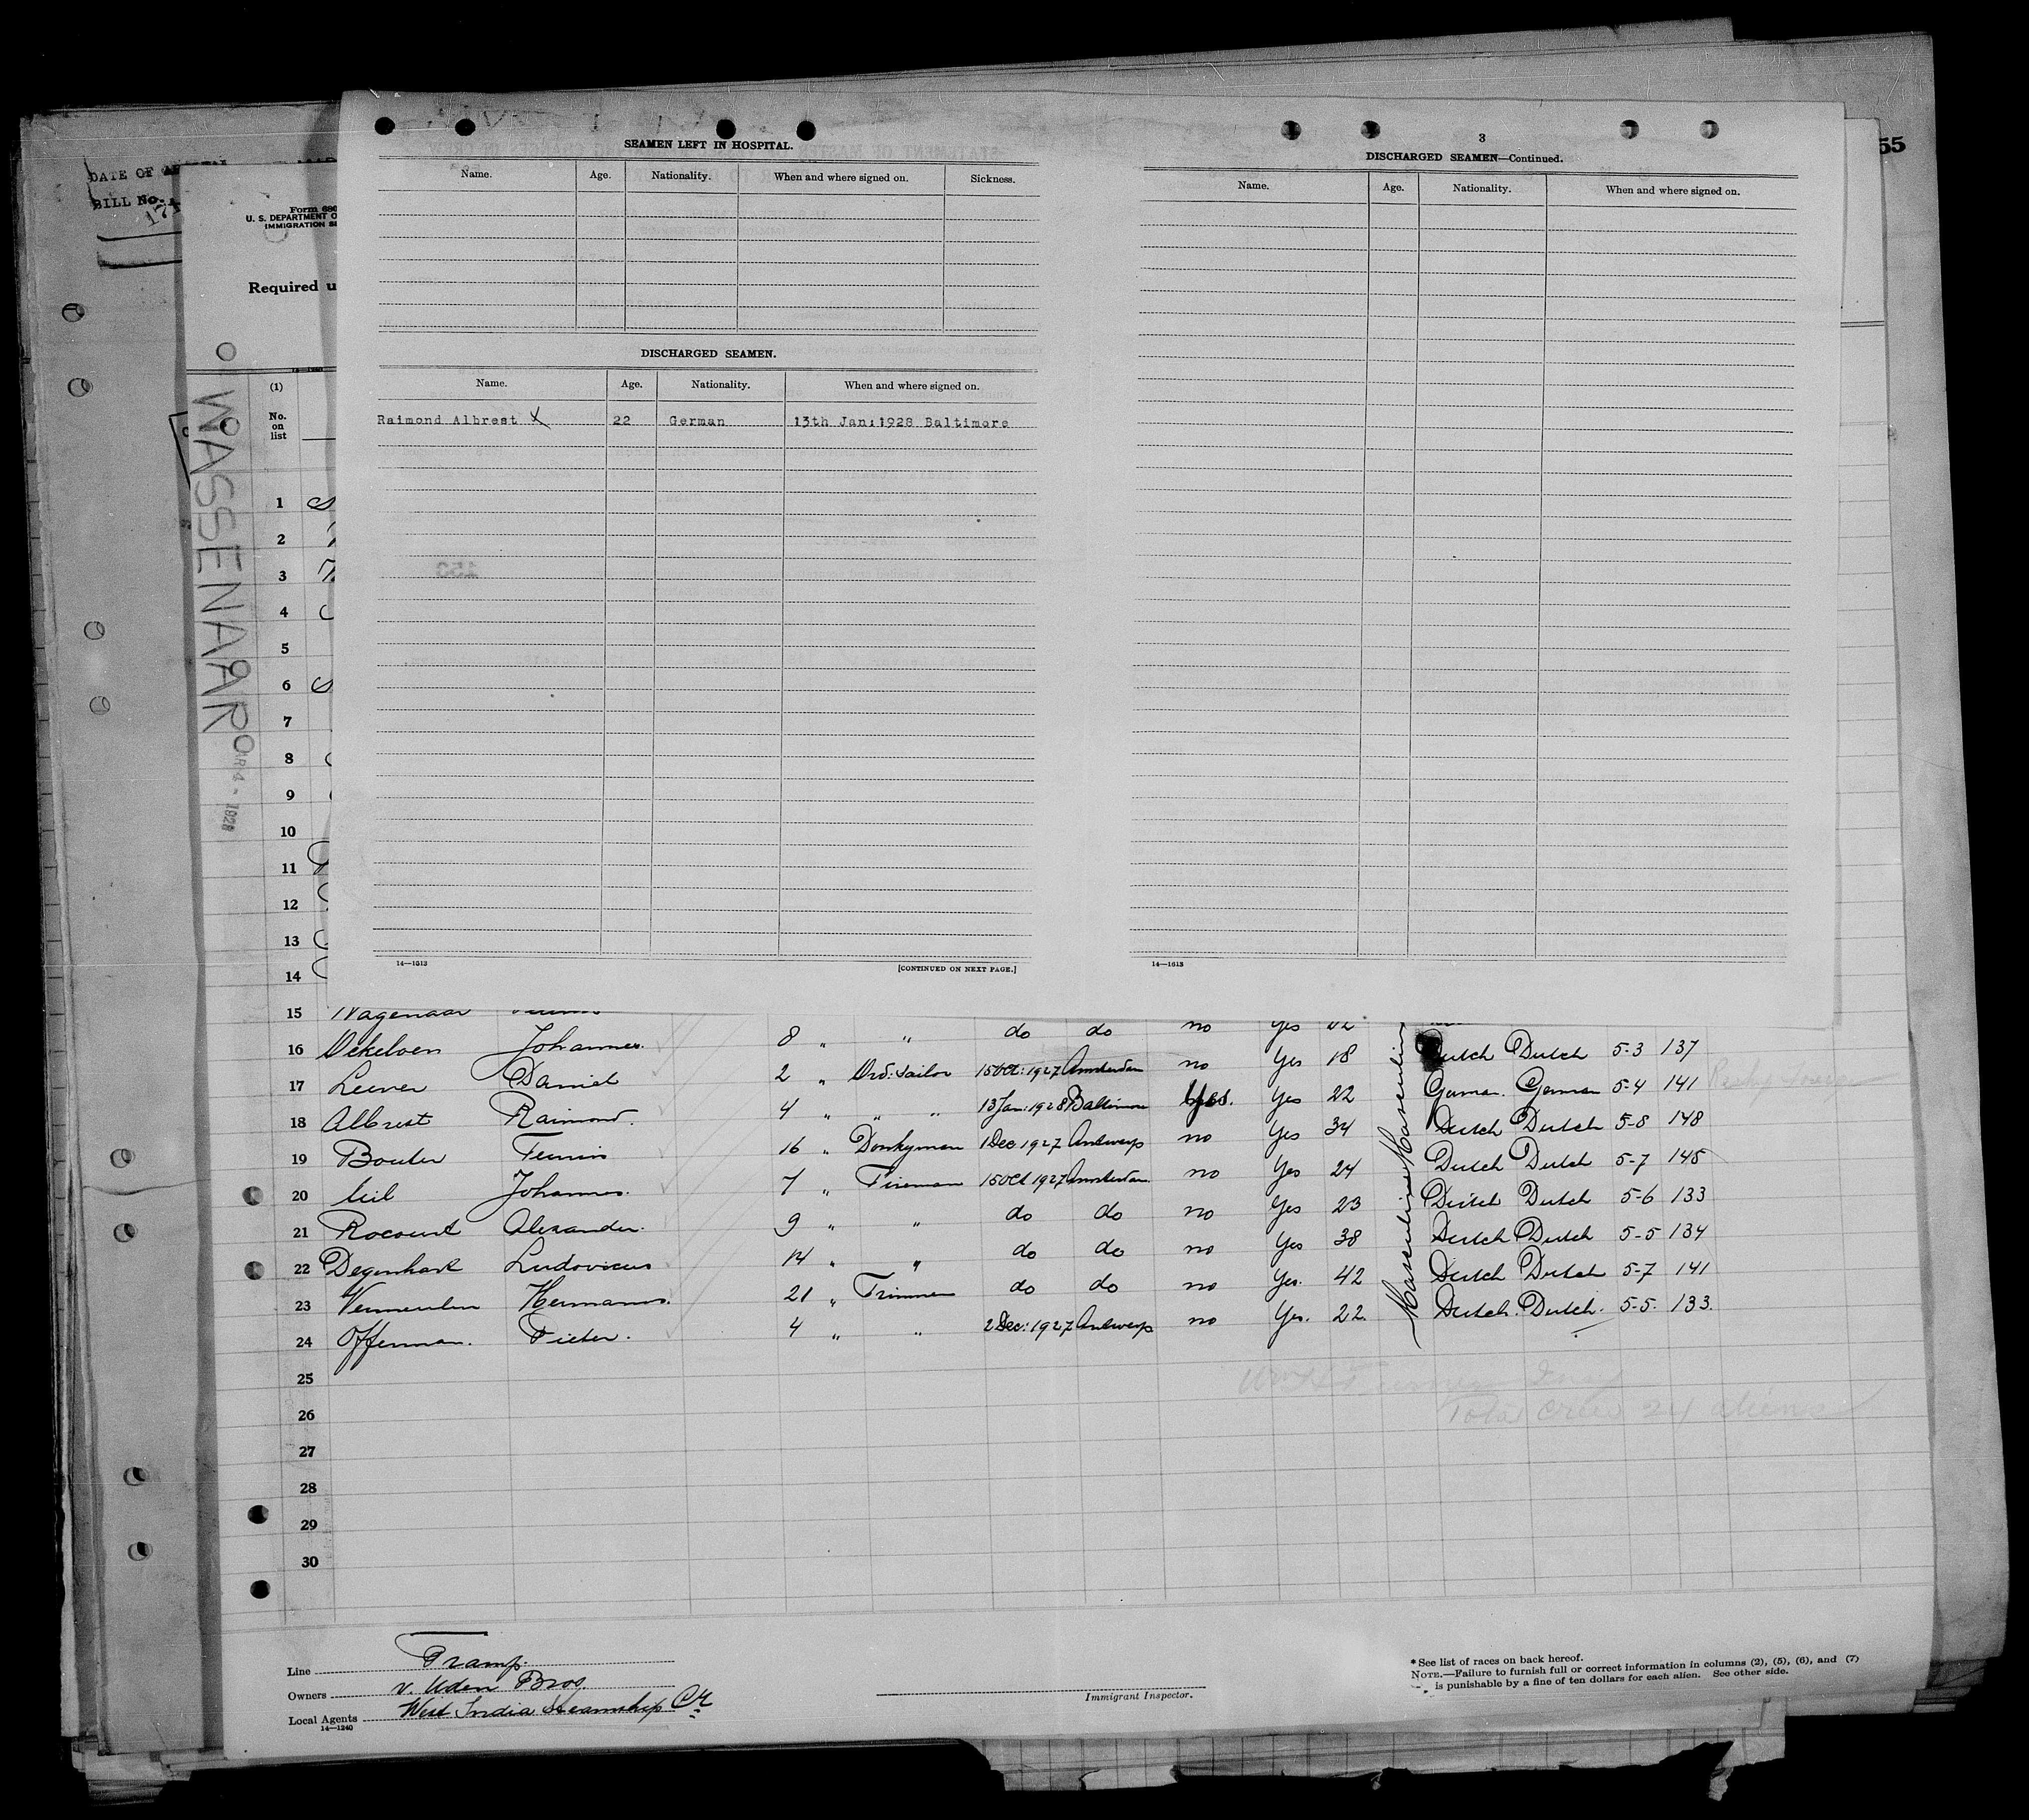 55
DATE OF
BILL No.
Form 680
U. S. DEPARTMENT O
IMMIGRATION SE
Required u
WASSENAAR
1928
SEAMEN LEFT IN HOSPITAL.
Name. Age. Nationality. When and where signed on. Sickness.
DISCHARGED SEAMEN.
Name. Age. Nationality. When and where signed on.
Raimond Albrest X 22 German 13th Jan:1928 Baltimore
14—1613
[CONTINUED ON NEXT PAGE.]
3
DISCHARGED SEAMEN—Continued.
Name. Age. Nationality. When and where signed on.
14—1613
(1)
No.
on
list
1
2
3
4
5
6
7
8
9
10
11
12
13
14
15 Wagenaar
8 " " do do no Yes
16 Dekeloen Johannes. 2 " Ord: Sailor 15 Oct: 1927 Amsterdam no Yes 18 Dutch Dutch 5-3 137
17 Leever Daniel 4 " " " 13 Jan: 1928 Baltimore Yes. Yes 22 German. German 5-4 141
18 Albrest Raimond. 16 " Donkyman 1 Dec 1927 Antwerp no Yes 34 Dutch Dutch 5-8 148
19 Bouter Teunis 7 " Fireman 15 Oct 1927 Amsterdam no Yes 24 Dutch Dutch 5-7 145
20 Johannes. 9 " " do do no Yes 23 Dutch Dutch 5-6 133
21 Rocourt Alexander. 14 " " do do no Yes 38 Dutch Dutch 5-5 134
22 Degenhart Ludovicus 21 " Trimmer do do no Yes. 42 Dutch Dutch 5-7 141
23 Vermeulen Hermanus. 4 " " 2 Dec: 1927 Antwerp no Yes. 22. Dutch. Dutch. 5-5. 133.
24 Offerman. Pieter.
Masculine Masculine
25
26 Total crew 24 aliens
27
28
29
30
Line Tramp.
Owners v. Uden Bros
Local Agents West India Steamship Cy
14—1240
Immigrant Inspector.
* See list of races on back hereof.
NOTE.—Failure to furnish full or correct information in columns (2), (5), (6), and (7)
is punishable by a fine of ten dollars for each alien. See other side.